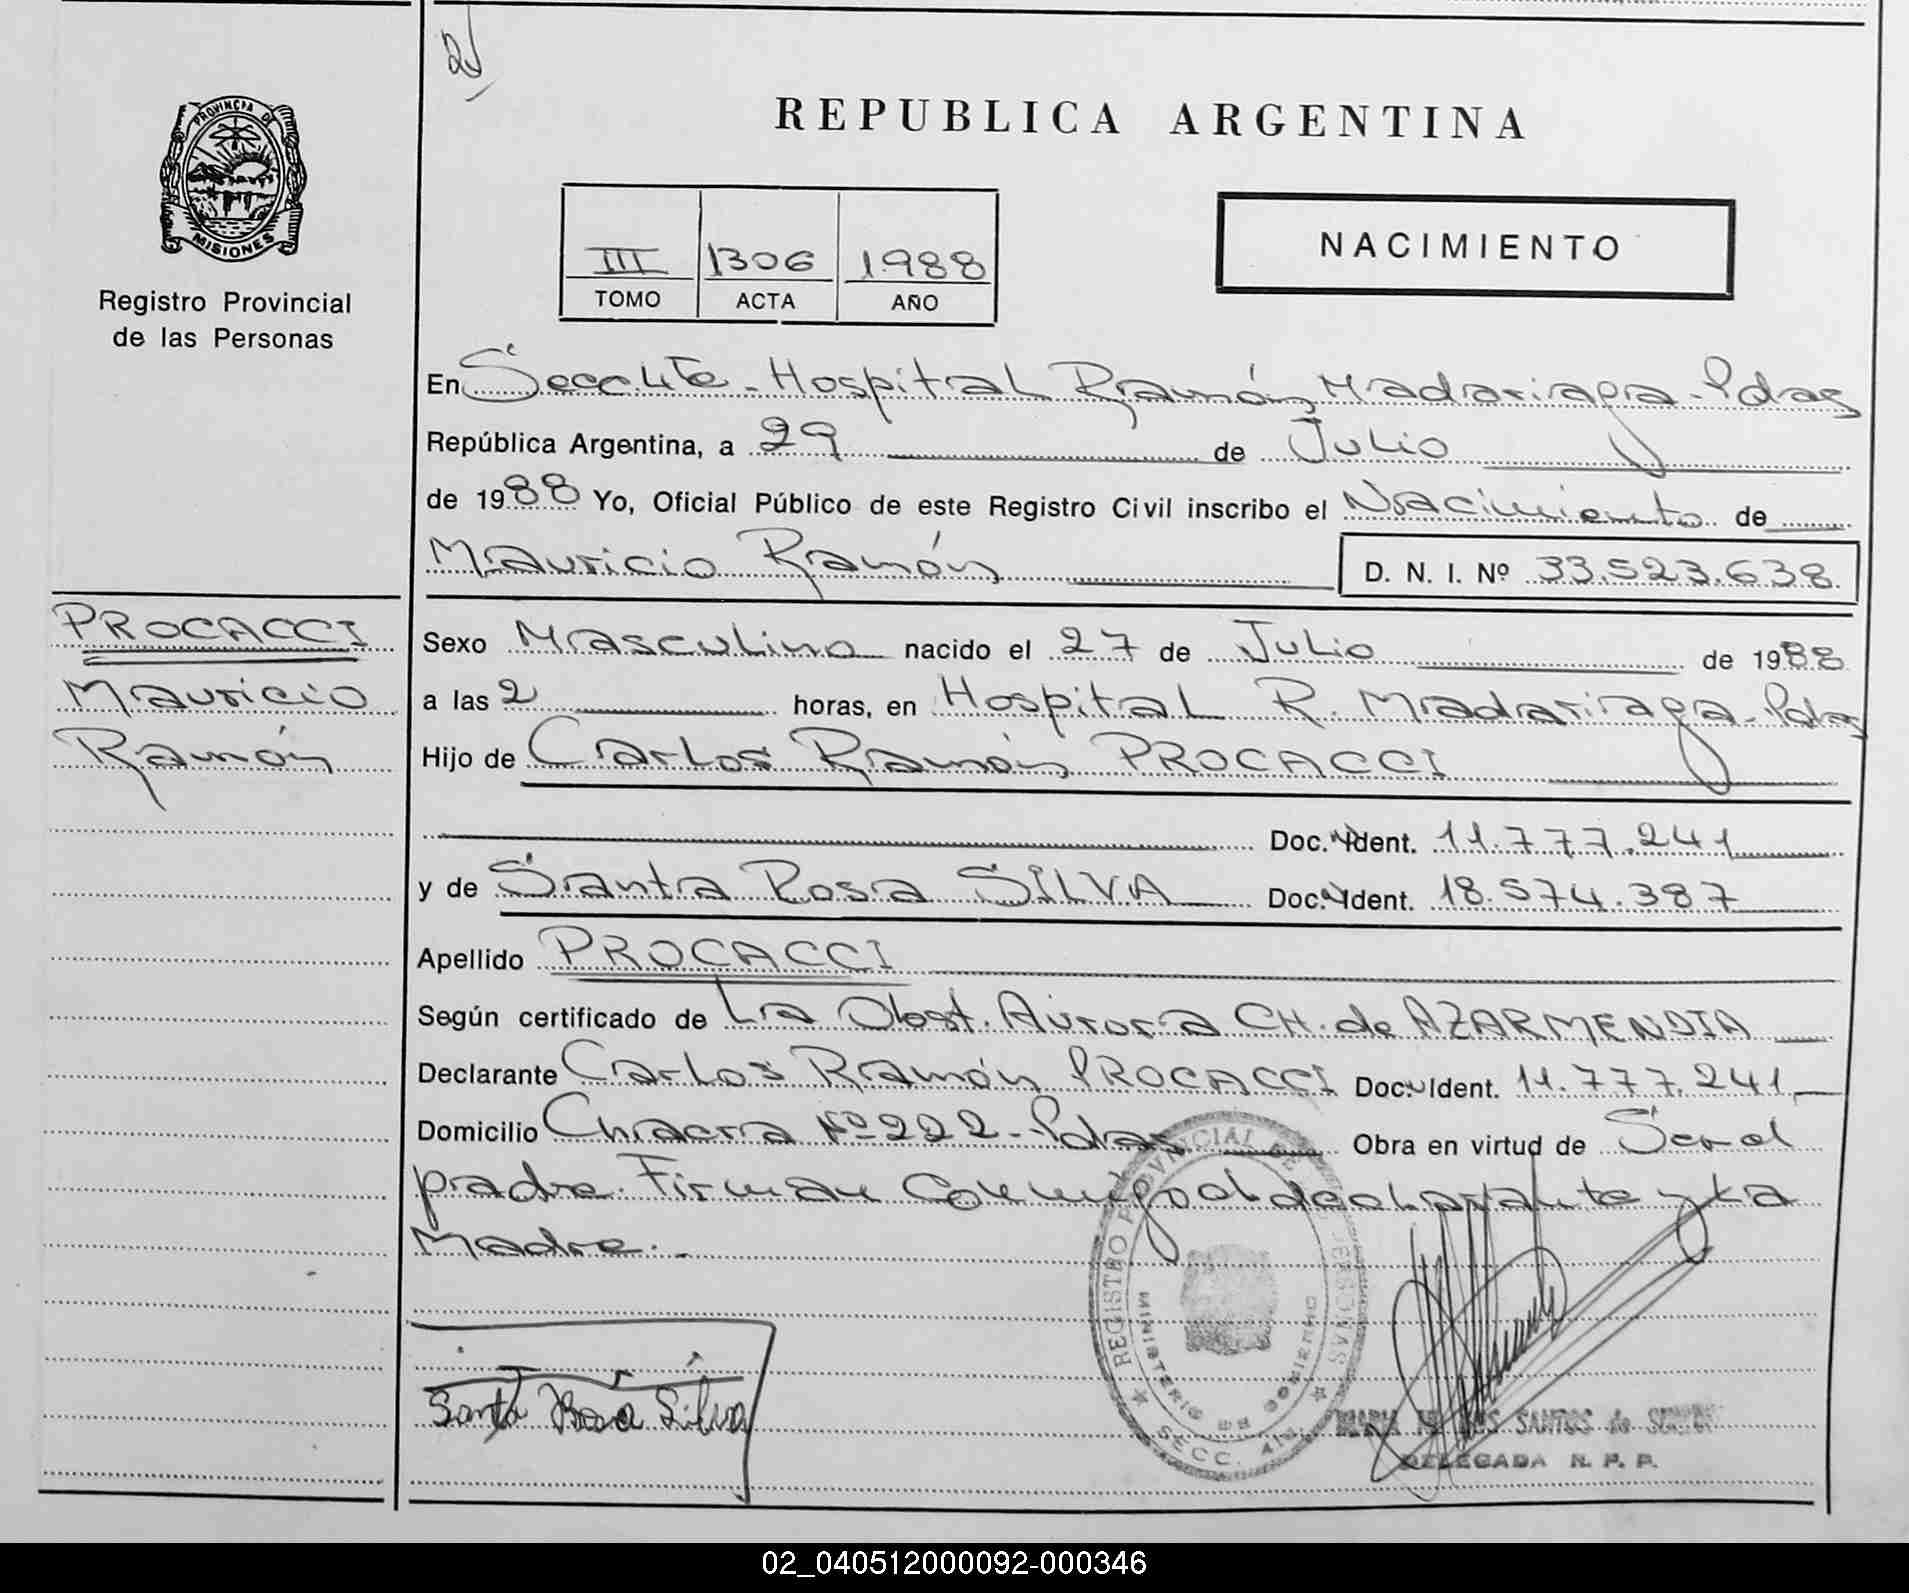 PROVINCIA DE
MISIONES
Registro Provincial
de las Personas
REPUBLICA ARGENTINA
III 1306 1988
TOMO ACTA AÑO
NACIMIENTO
En Secc 4ta - Hospital Ramón Madariaga - Pdas
República Argentina, a 29 de Julio
de 1988 Yo, Oficial Público de este Registro Civil inscribo el Nacimiento de
Mauricio Ramón D. N. I. Nº 33.523.638
PROCACCI
Mauricio
Ramón
Sexo Masculino nacido el 27 de Julio de 1988
a las 2 horas, en Hospital R. Madariaga - Pdas
Hijo de Carlos Ramón PROCACCI
Doc. Ident. 11.777.241
y de Santa Rosa SILVA Doc. Ident. 18.574.387
Apellido PROCACCI
Según certificado de La Obst. Aurora CH. de AZARMENDIA
Declarante Carlos Ramón PROCACCI Doc. Ident. 11.777.241
Domicilio Chacra Nº 222 - Pdas Obra en virtud de Ser el
padre. Firman Conmigo el declarante y La
Madre. -
Santa Rosa Silva
REGISTRO PROVINCIAL DE PERSONAS
MINISTERIO DE GOBIERNO
SECC. 4ta.
SANTOS de
DELEGADA R. P. P.
02_040512000092-000346